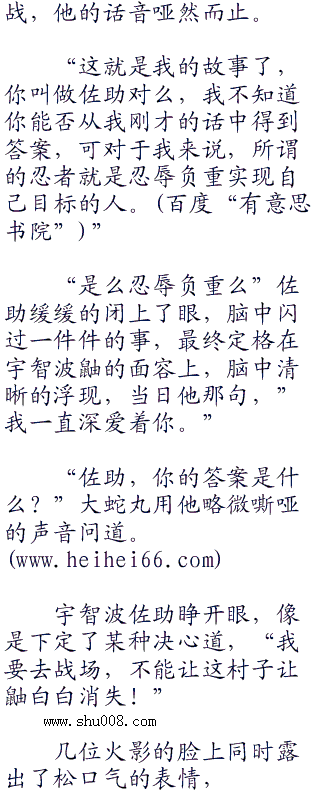 战，他的话音哑然而止。
“这就是我的故事了，
你叫做佐助对么，我不知道
你能否从我刚才的话中得到
答案，可对于我来说，所谓
的忍者就是忍辱负重实现自
己目标的人。(百度“有意思
书院”)”
“是么忍辱负重么”佐
助缓缓的闭上了眼，脑中闪
过一件件的事，最终定格在
宇智波鼬的面容上，脑中清
晰的浮现，当日他那句，”
我一直深爱着你。”
“佐助，你的答案是什
么？”大蛇丸用他略微嘶哑
的声音问道。
(www.heihei66.com)
宇智波佐助睁开眼，像
是下定了某种决心道，“我
要去战场，不能让这村子让
鼬白白消失！”
www.shu008.com
几位火影的脸上同时露
出了松口气的表情，